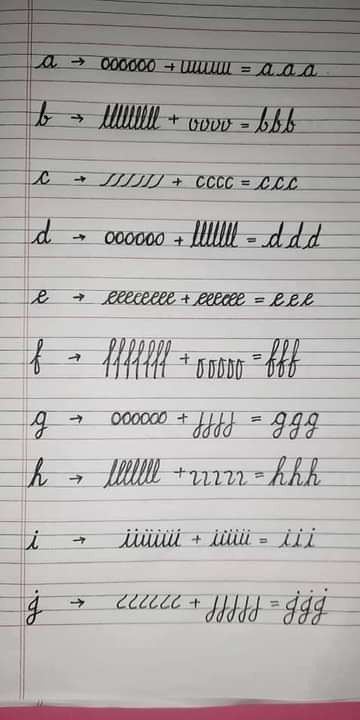 a → oooooo + uuuuu = a a a
b → lllllllll + vvvv = bbb
c → ////// + cccc = ccc
d → oooooo + lllllll = d d d
e → eeeeeeee + eeeeee = e e e
f → fffffff + ooooo = fff
g → oooooo + jjjj = ggg
h → lllllll + 22222 = hhh
i → iiiiiii + iiiii = i i i
j → cccccc + jjjjj = jjj